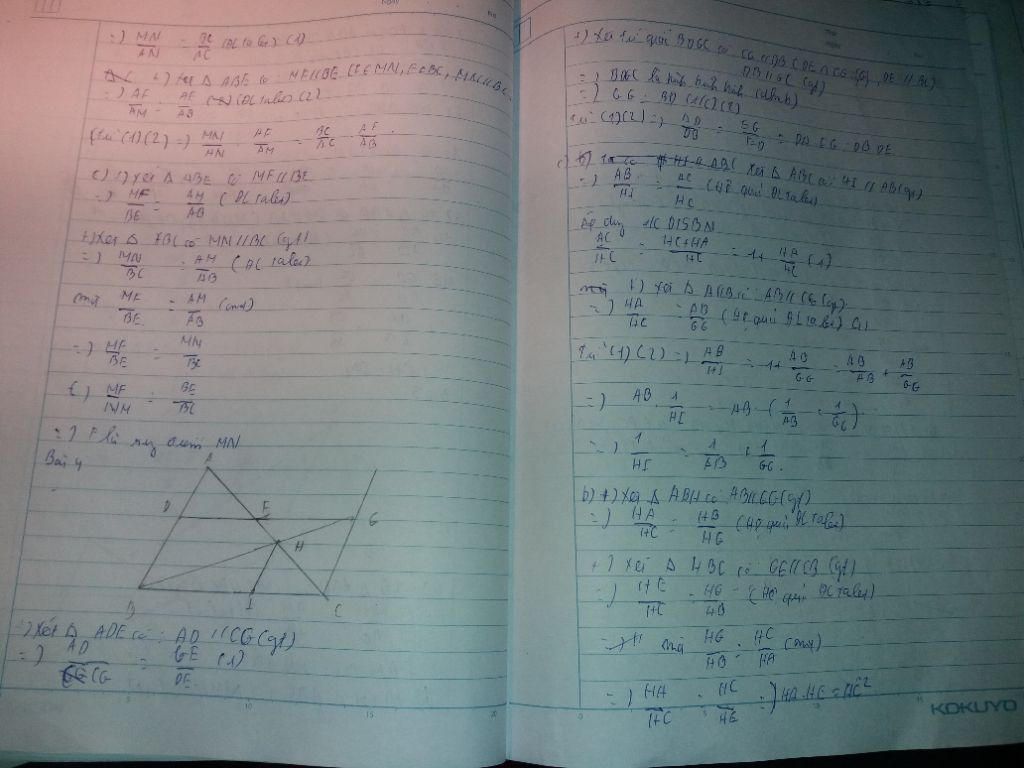 =) MN/AN = BC/AC (ĐL ta lét) (1)
2) Xét Δ ABE có MF // BE (F ∈ MN, E ∈ BC, MN // BC
=) AF/AM = AE/AB (ĐL tales) (2)
Từ (1) (2) =) MN/AN . AF/AM = BC/AC . AE/AB
c) 1) Xét Δ ABE có MF // BE
=) MF/BE = AM/AB (ĐL Tales)
+) Xét Δ ABC có MN // BC (gt)
=) MN/BC = AM/AB (ĐL Tales)
mà MF/BE = AM/AB (cmt)
=) MF/BE = MN/BC
=) MF/MN = BE/BC
=) F là trung điểm MN
Bài 4
A
D E G
H
B I C
+) Xét Δ ADE có: AD // CG (gt)
=) AD/CG = GE/DE (1)
+) Xét tứ giác BDGC có CG // DB (DE ∩ CG = {G}, DE // BC)
DB // GC (gt)
=) BDGC là hình bình hành (dhnb)
=) CG = BD (2)
Từ (1) (2) =) AD/DB = EG/ED = DA . EG = DB . DE
Xét Δ ABC có HI // AB (gt)
=) AB/HI = AC/HC (Hệ quả ĐL Tales)
Áp dụng TC DTSBN
AC/HC = HC+HA/HC = 1 + HA/HC (1)
+) Xét Δ AHB có: AB // CG (gt)
=) HA/HC = AB/CG (Hệ quả ĐL tales)
Từ (1) (2) =) AB/HI = 1 + AB/CG = AB/AB + AB/CG
=) AB . 1/HI = AB . (1/AB + 1/CG)
=) 1/HI = 1/AB + 1/CG.
b) +) Xét Δ ABH có AB // CG (gt)
=) HA/HC = HB/HG (Hệ quả ĐL Tales)
+) Xét Δ HBC có GE // CB (gt)
=) HE/HC = HG/HB (Hệ quả ĐL tales)
mà HG/HB = HC/HA (cmt)
=) HA/HC = HC/HE =) HA . HE = HC²
KOKUYO